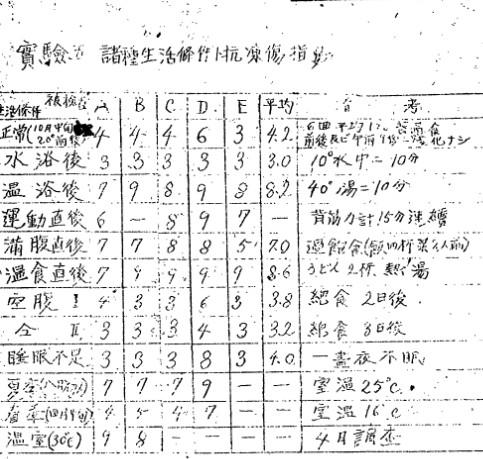 實驗 諸種生活條件ト抗凍傷指數
生活條件 被檢者 A B C D. E 平均 備考
正常(10月中旬 20°前後) 4 4 4 6 3 4.2 6回平均
水浴後 3 3 3 3 3 3.0 10°水中ニ10分
温浴後 7 9 8 9 8 8.2 40°湯ニ10分
運動直後 6 — 8 9 7 — 背筋力計15分連續
満腹直後 7 7 8 8 5 7.0 過飽食
温食直後 7 9 9 9 9 8.6 うどん2杯 熱イ湯
空腹 I 4 3 3 6 3 3.8 絶食2日後.
仝 II 3 3 3 4 3 3.2 絶食3日後
睡眠不足 3 3 3 8 3 4.0 一晝夜不眠.
7 7 7 9 — — 室温25°C.
4 5 4 7 — — 室温16°C
温室(30°C) 9 8 — — — — 4月調査